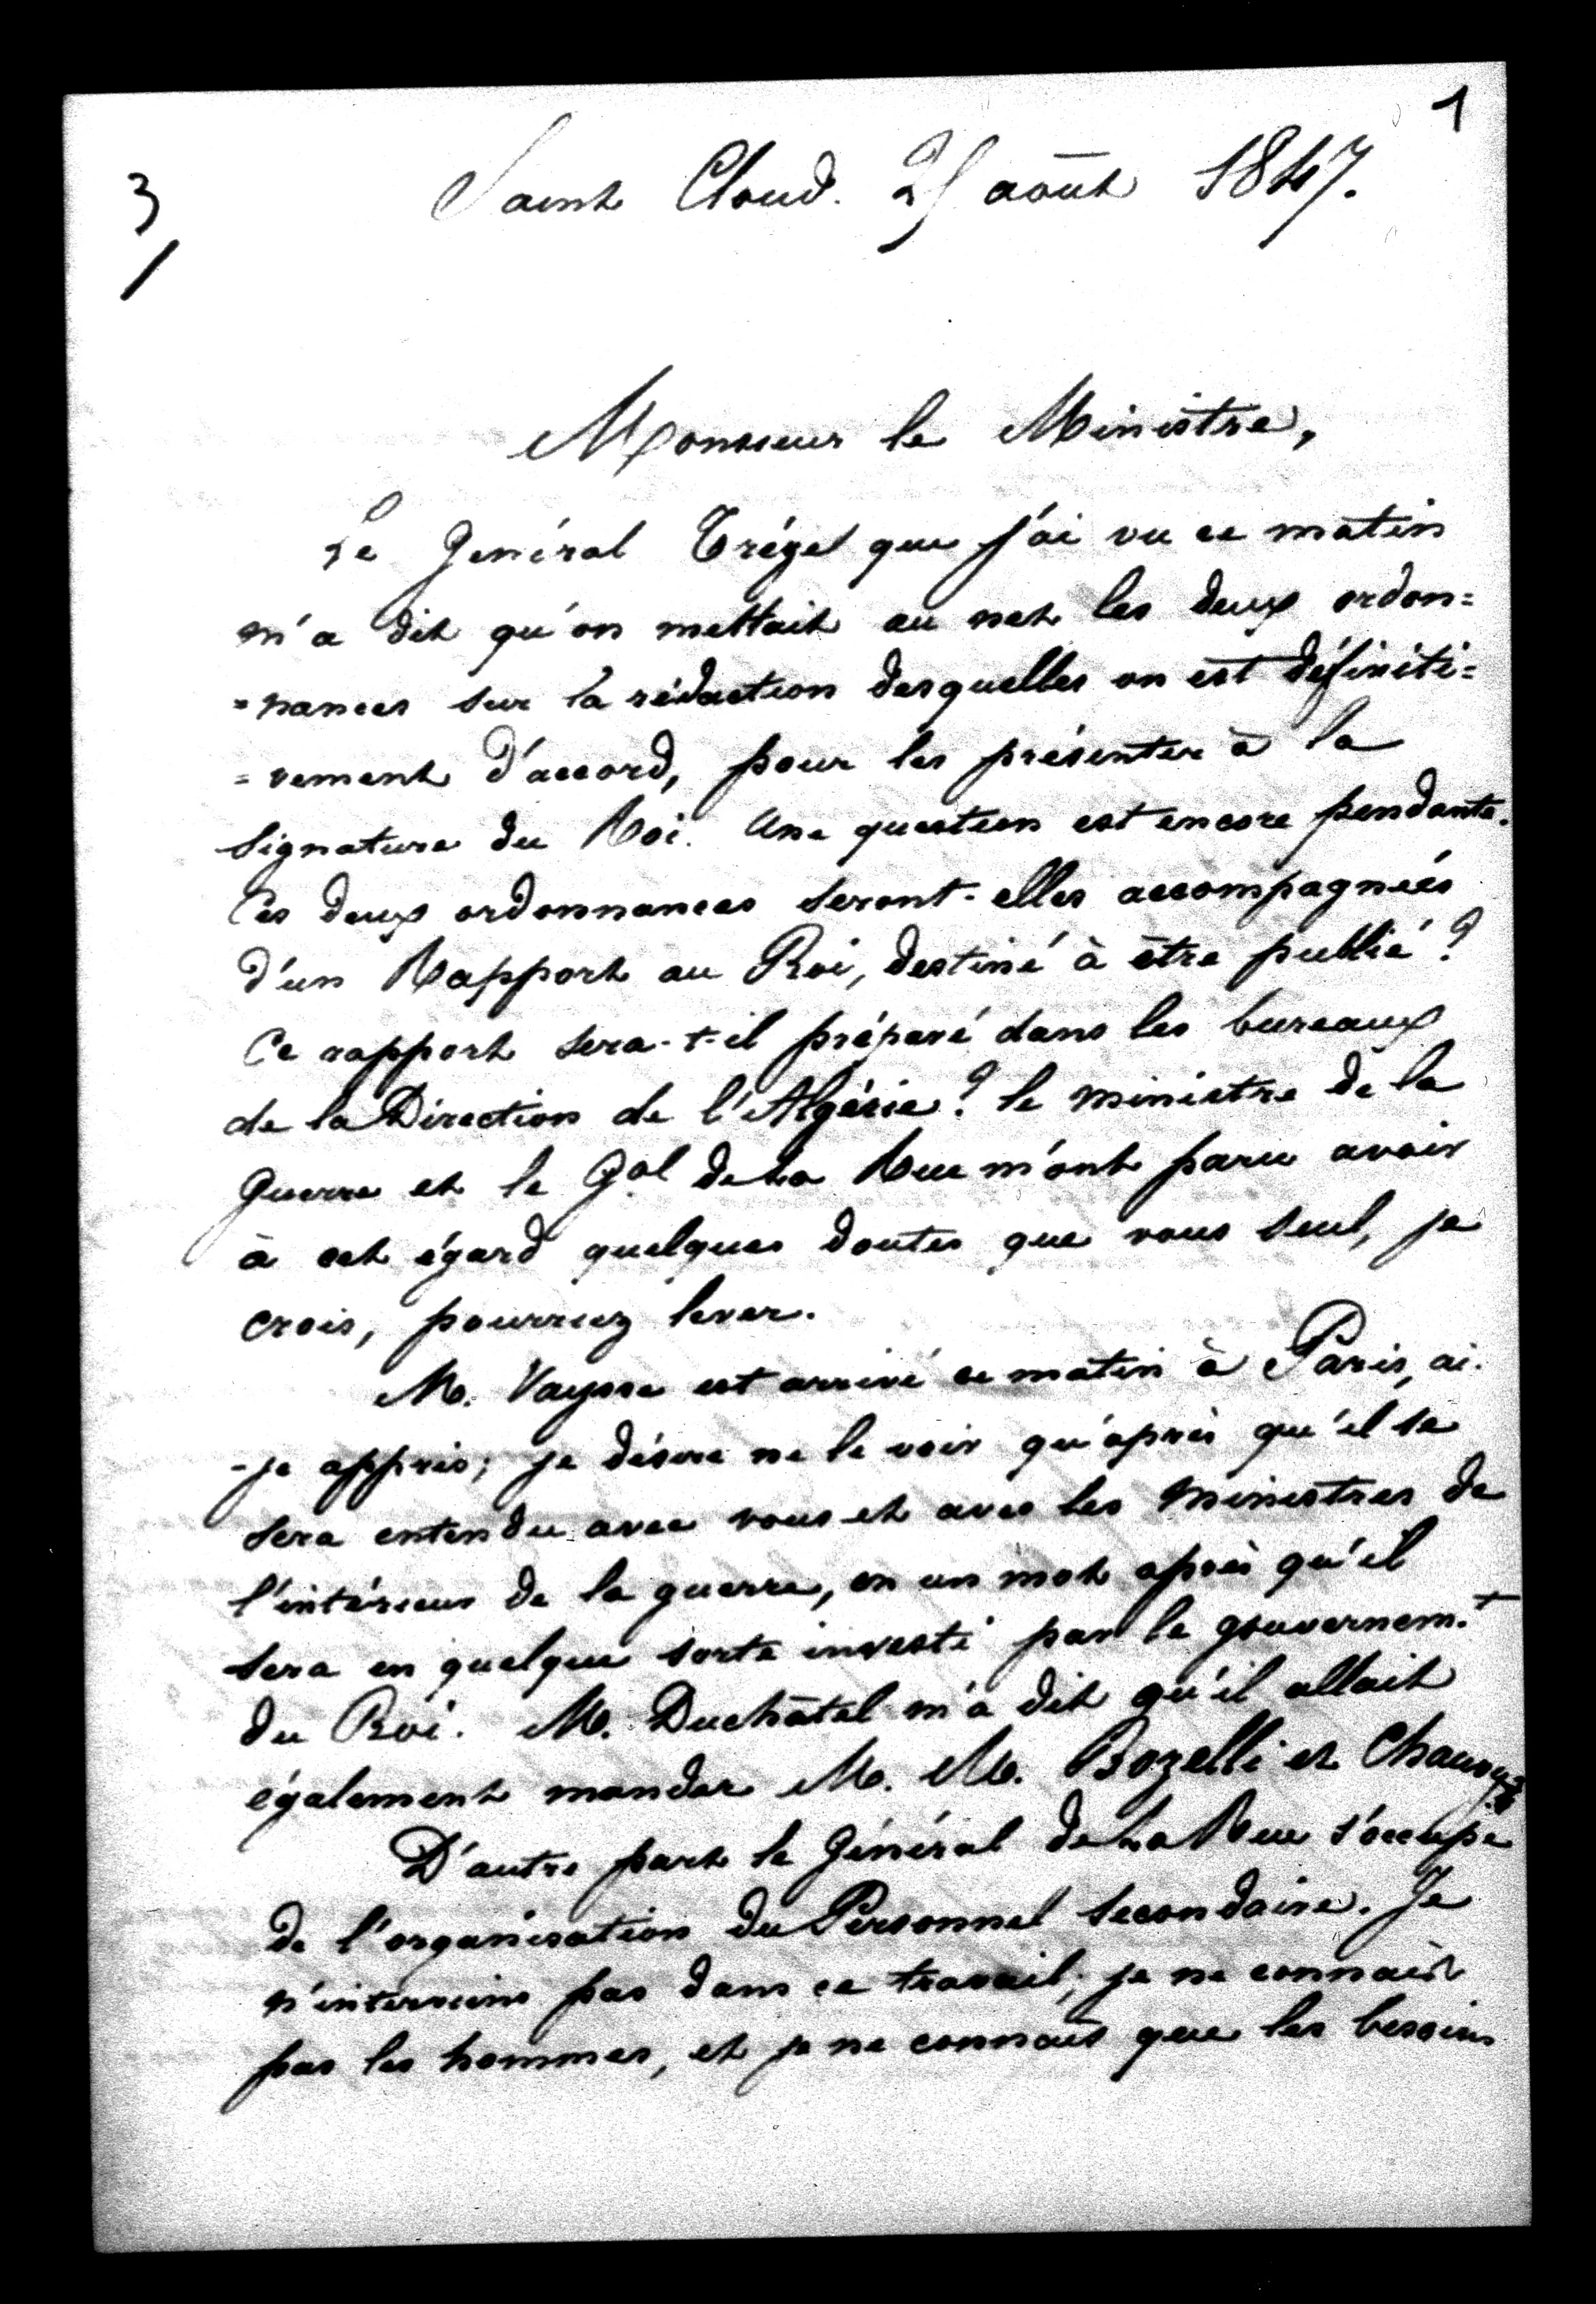 1
3
/
Saint Cloud. 25 août 1847.
Monsieur le Ministre,
Le Général Trézel que j'ai vu ce matin
m'a dit qu'on mettait au net les deux ordon=
=nances sur la rédaction desquelles on est définiti=
=vement d'accord, pour les présenter à la
signature du Roi. Une question est encore pendante.
Ces deux ordonnances seront-elles accompagnées
d'un Rapport au Roi, destiné à être publié ?
Ce rapport sera-t-il préparé dans les bureaux
de la Direction de l'Algérie ? le ministre de la
guerre et le Gal de La Rue m'ont paru avoir
à cet égard quelques doutes que vous seul, je
crois, pourriez lever.
M. Vaysse est arrivé ce matin à Paris, ai-
-je appris ; je désire ne le voir qu'après qu'il se
sera entendu avec vous et avec les ministres de
l'intérieur de la guerre, en un mot après qu'il
sera en quelque sorte investi par le gouvernem.t
du Roi. M. Duchâtel m'a dit qu'il allait
également mander M. M. Bozelli et
D'autre part le Général de La Rue s'occupe
de l'organisation du Personnel secondaire. Je
n'interviens pas dans ce travail ; je ne connais
pas les hommes, et je ne connais que les besoins